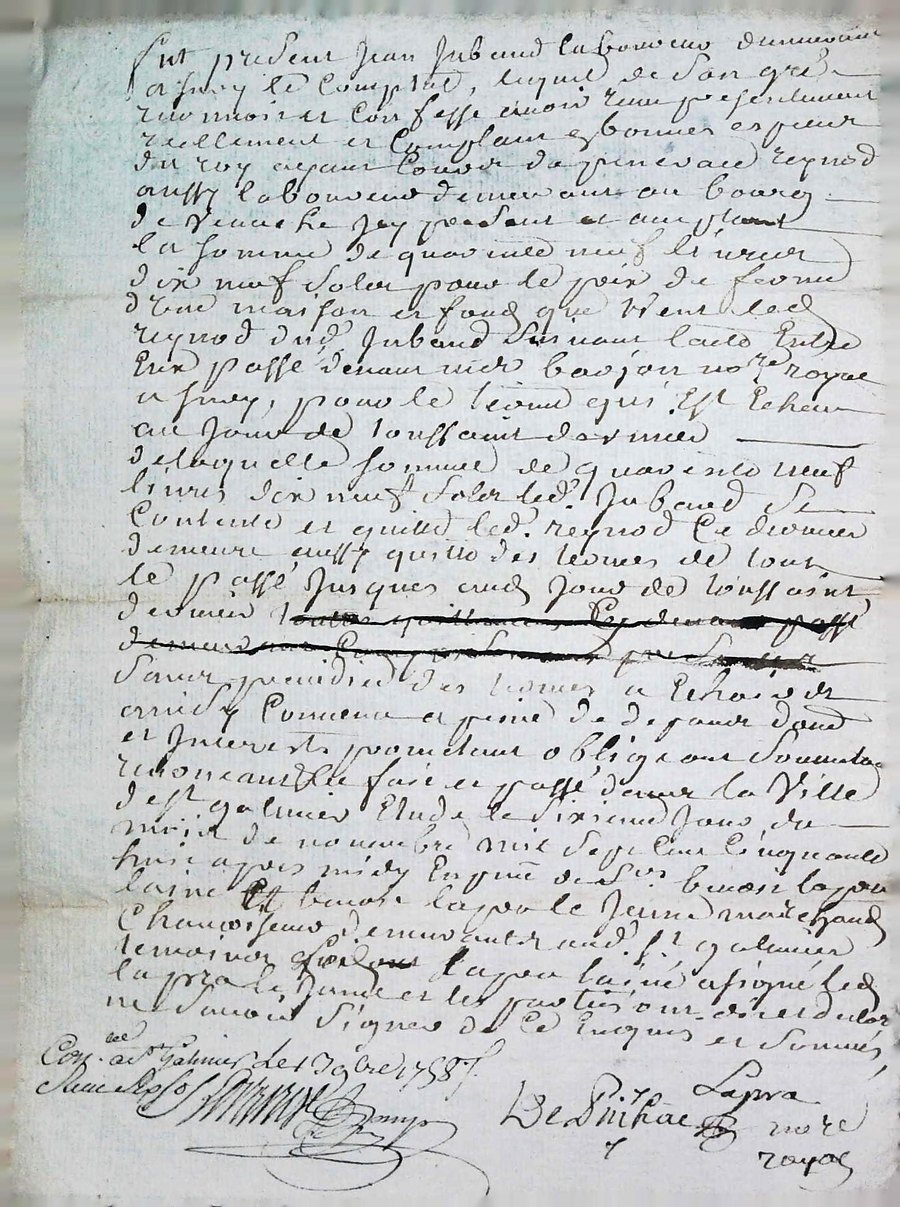 fut present Jean Juband laboureur demeurant
a Sury le Comptal, lequel de son gré
reconnoit et confesse avoir receu presentement
reellement et comptant es bonnes especes
du roy ayant cours de reynod
aussy laboureur demeurant au bourg
de Veauche Jcy present et acceptant
la somme de quarente neuf livres
dix neuf solz pour le prix de ferme
d'une maison et fond que tient led
reynod dud. Juband suivant l'acte Entre
Eux passé devant mer no.re royal
a Sury, pour le terme qui Est Echeu
au Jour de toussaint dernier
de laquelle somme de quarente neuf
livres dix neuf solz led. Juband se
contente et quitte led. reynod Ce dernier
demeure aussy quitte des termes de tout
le passé Jusques aud. Jour de toussaint
dernier
sans prejudice des termes a Echeoir
ainsy Convenu a peine de depans dom
et Interests promettant obligeant soumettan
renonceant &a fait et passé dans la Ville
de st galmier Etude le sixieme Jour du
mois de novembre mil sept cent cinquante
huit apres midy En pnce de Srs. benoit lapra
laine Et benoit lapra le Jeune marchand
demeurants aud. st. galmier
temoins lapra laine a signé led
lapra le Jeune et les parties ont declaré
ne savoir signer de Ce Enquis et sommés
Con.lé a St Galmier le 13 9bre 1758
Lapra
nore
royal